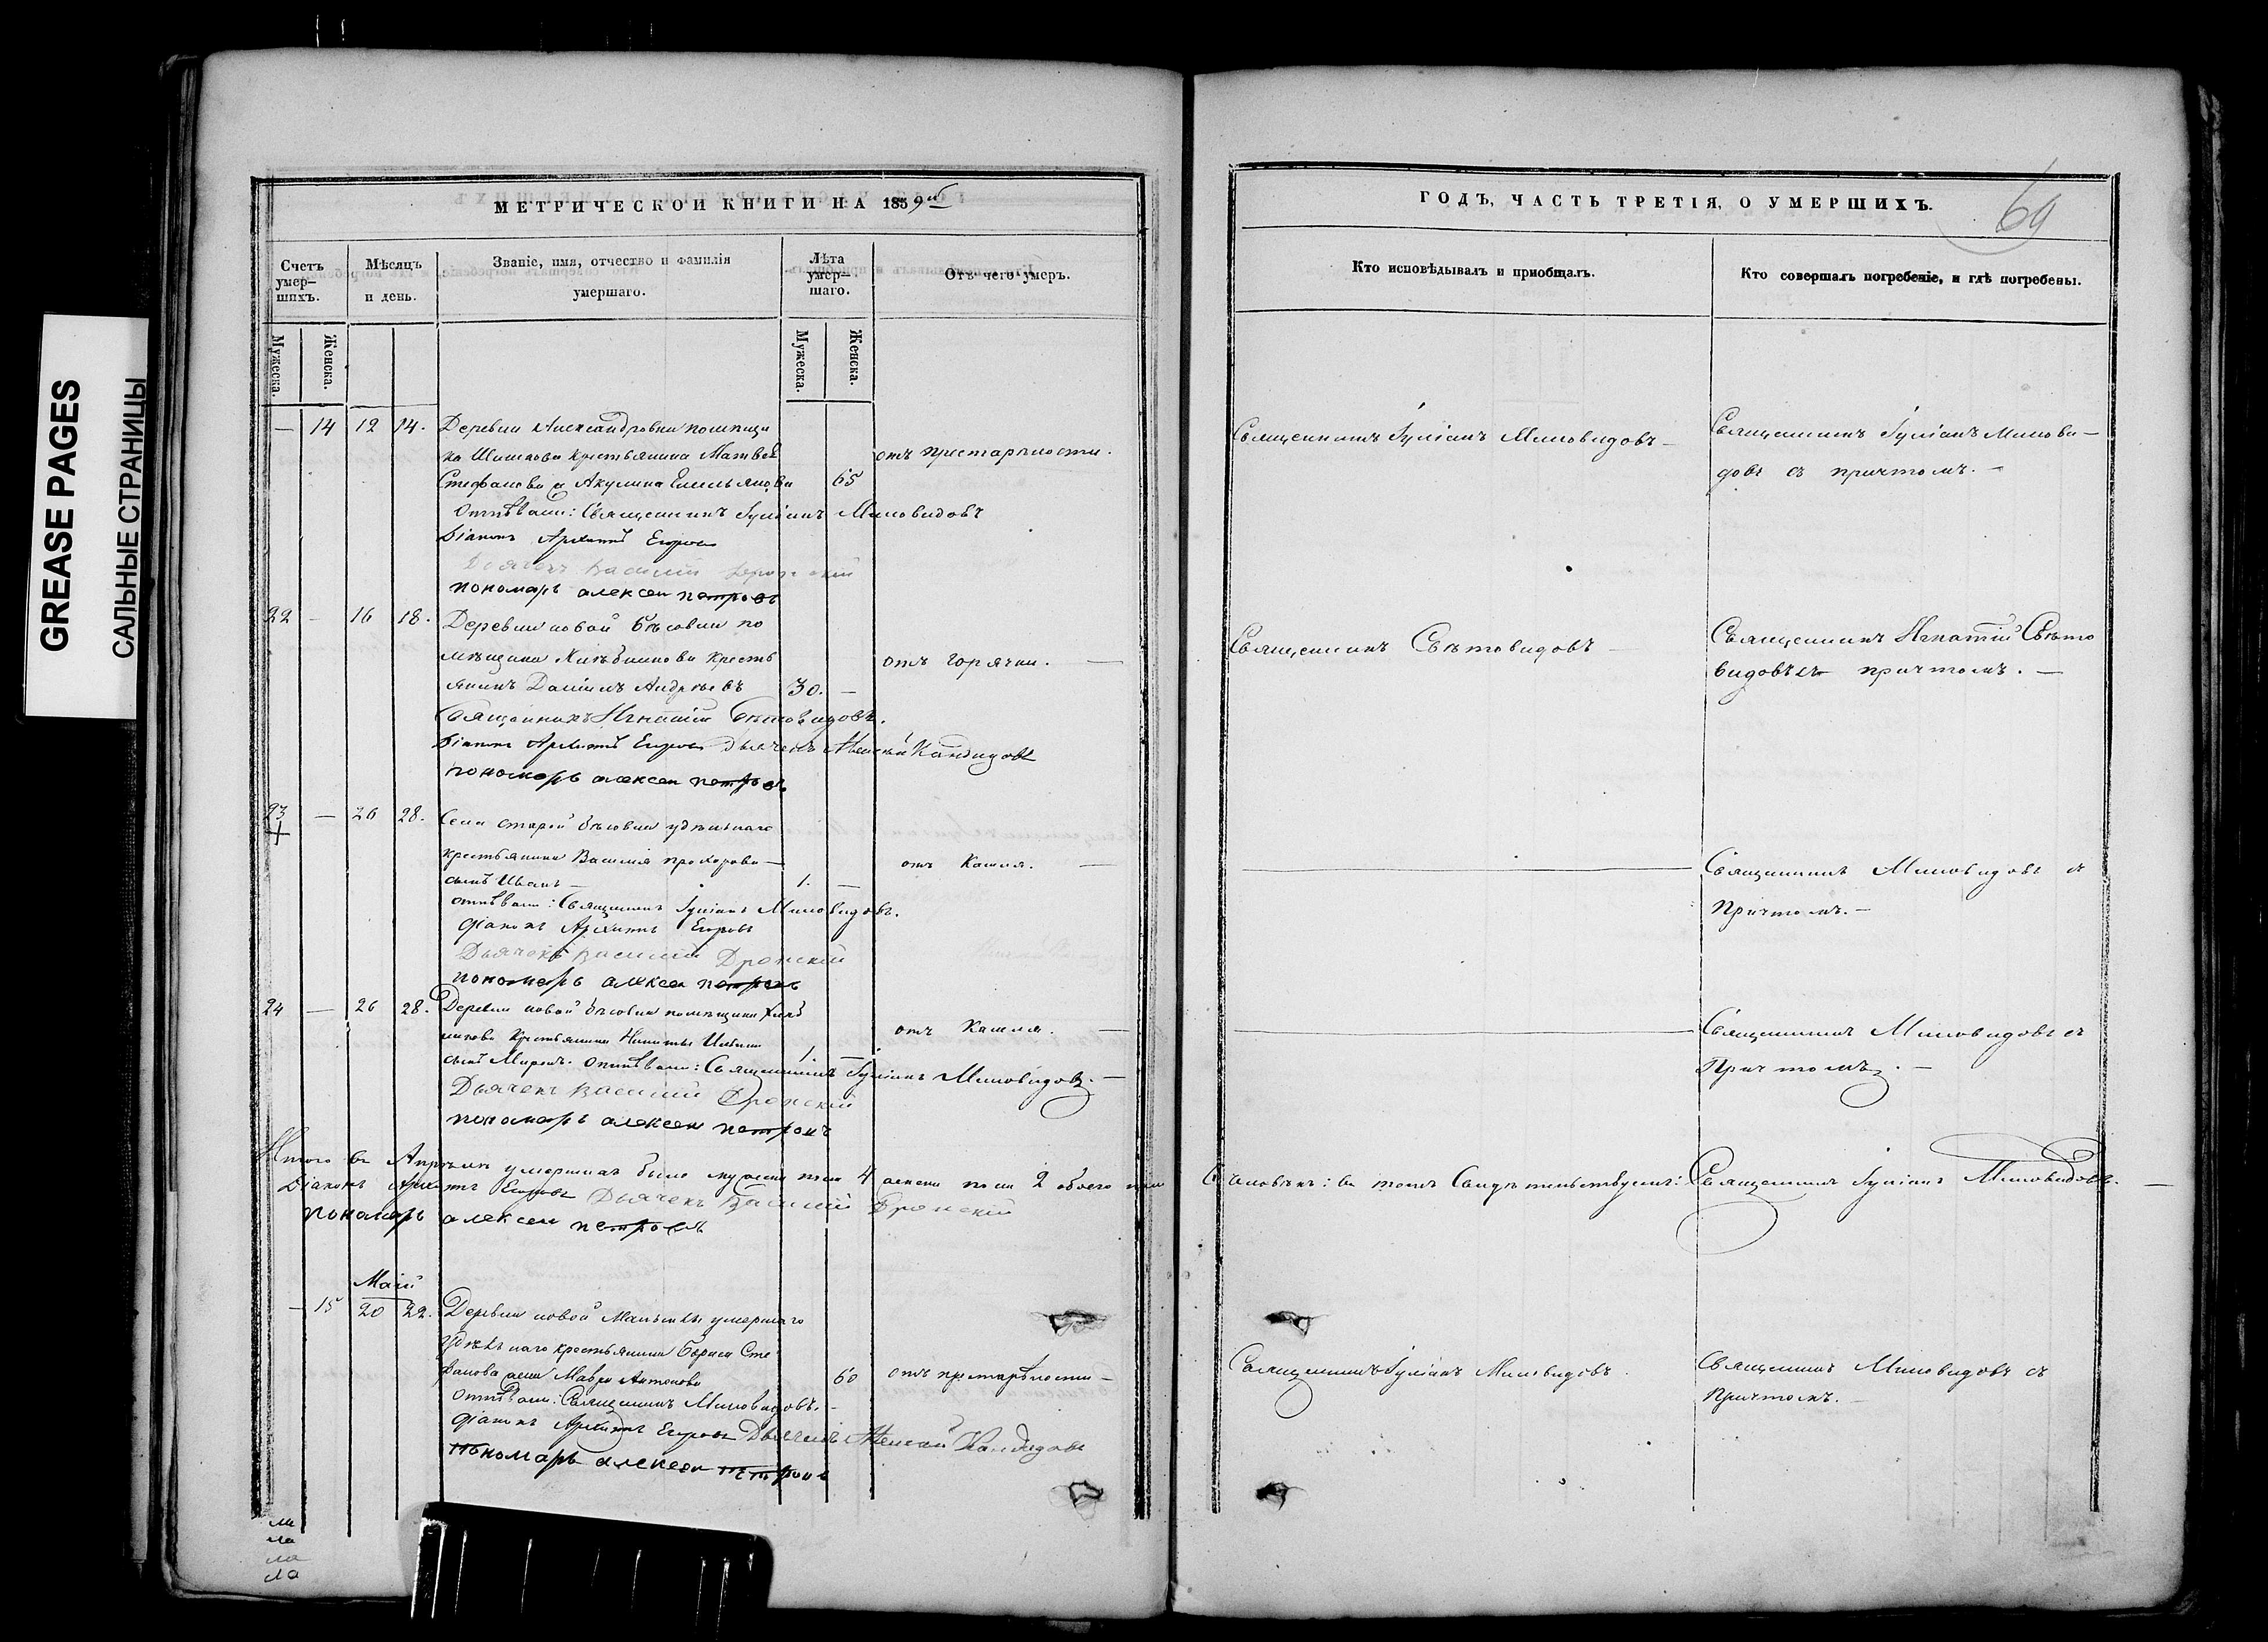 GREASE PAGES
САЛЬНЫЕ СТРАНИЦЫ
МЕТРИЧЕСКОЙ КНИГИ НА 1859й
Счетъ умер-шихъ.
Мѣсяцъ и день.
Званіе, имя, отчество и фамилія умершаго.
Лѣта умер-шаго.
Отъ чего умеръ.
Мужеска.
Женска.
Мужеска.
Женска.
— 14 12 14. Деревни Александровки помѣщи
ка Шишкова крестьянина Матвѣя
отъ престарѣлости.
Стефанова Акулина Емельянова 65
Отпѣвали: Священникъ Іуліанъ Миловидовъ
Діаконъ Архиппъ Егоровъ
Дьячекъ Василій Дронскій
пономарь алексеи петровъ
22 — 16 18. Деревни новой Бѣсовки по
мѣщика Хлѣбникова кресть
отъ горячки. —
янинъ Даніилъ Андреевъ 30. —
Священникъ Игнатій Свѣтовидовъ.
Діаконъ Архиппъ Егоровъ Дьячекъ Алексѣй Кандидовъ
пономарь алексеи петровъ
23 — 26 28. Села старой Бѣсовки удѣльнаго
крестьянина Василія Прохорова —
отъ Кашля. —
сынъ Иванъ — 1. —
отпѣвали: Священникъ Іуліанъ Миловидовъ.
Діаконъ Архиппъ Егоровъ
Дьячекъ Василій Дронскій
пономарь алексеи петровъ
24 — 26 28. Деревни новой Бѣсовки помѣщика Хлѣб
никова Крестьянина Никиты
отъ Кашля. —
сынъ Миронъ. Отпѣвали: Священникъ Іуліанъ Миловидовъ. —
1. —
Дьячекъ Василій Дронскій
пономарь алексеи петровъ
Итого въ Апрѣлѣ умершихъ было мужеска пола 4 женска пола 2 обоего пола
Діаконъ Архиппъ Егоровъ Дьячекъ Василій Дронскій
пономарь алексеи петровъ
Маій
— 15 20 22. Деревни новой умершаго
Удѣльнаго крестьянина Бориса Сте
фанова жена Мавра Антонова 60 отъ престарѣлости —
Отпѣвали: Священникъ Миловидовъ. —
Діаконъ Архиппъ Егоровъ Дьячекъ Алексѣй Кандидовъ
пономарь алексеи петровъ
ли
ла
ла
ла
69
ГОДЪ, ЧАСТЬ ТРЕТІЯ, О УМЕРШИХЪ.
Кто исповѣдывалъ и приобщалъ.
Кто совершалъ погребеніе, и гдѣ погребены.
Священникъ Іуліанъ Миловидовъ —
Священникъ Іуліанъ Милови—
довъ съ причтомъ. —
Священникъ Свѣтовидовъ —
Священникъ Игнатій Свѣто
видовъ съ причтомъ. —
Священникъ Миловидовъ съ
Причтомъ. —
Священникъ Миловидовъ съ
Причтомъ. —
6 человѣкъ: въ томъ Свидѣтельствуемъ: Священникъ Іуліанъ Миловидовъ. —
Священникъ Іуліанъ Миловидовъ.
Священникъ Миловидовъ съ
Причтомъ. —